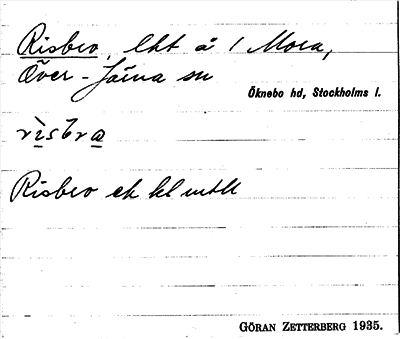 Risbro, lht å 1 Mora,
Över-Järna sn
Öknebo hd, Stockholms l.
rìsbra
Risbro ek kl mtll
GÖRAN ZETTERBERG 1935.